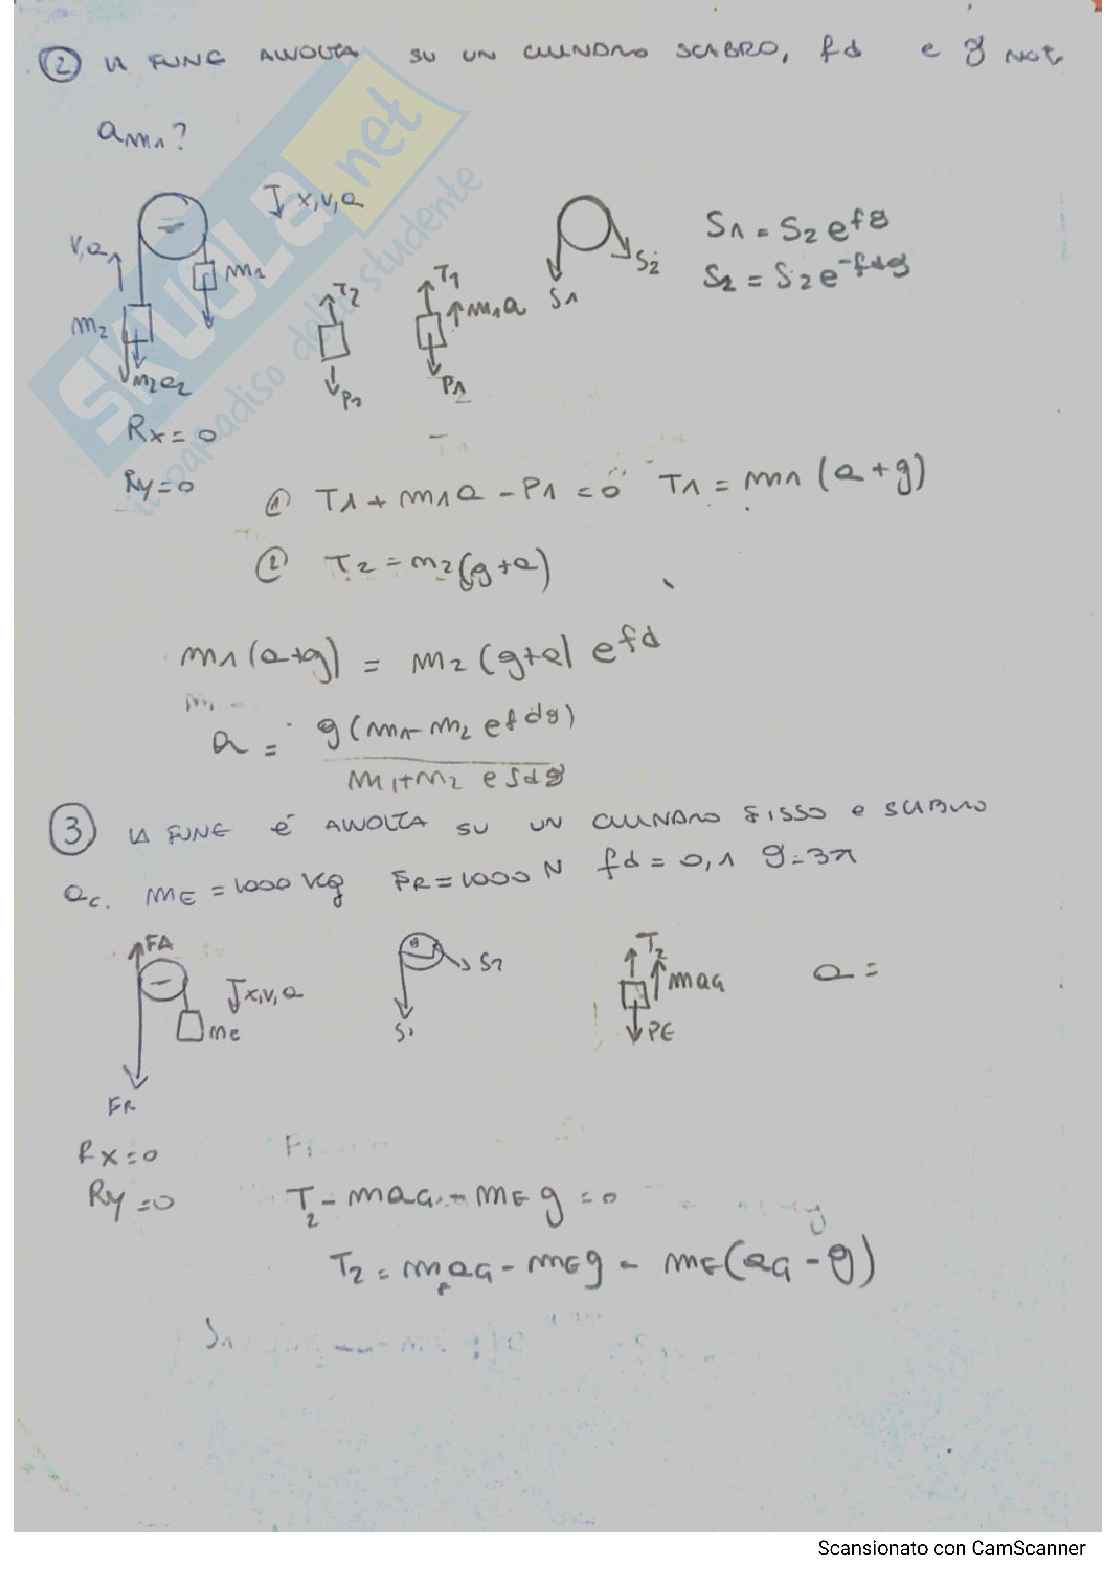 ② LA FUNE AVVOLTA SU UN CILINDRO SCABRO, fd e ϑ NOTI
am1?
x,v,a
v,a
m1
m2
m2a2
T2
P2
T1
m1a
P1
S1
S2
S1 = S2 e^fϑ
S2 = S2 e^-fdϑ
Rx=0
Ry=0
① T1 + m1a - P1 = 0 T1 = m1 (a+g)
② T2 = m2(g+a)
m1(a+g) = m2(g+a) e^fd
a = g(m1-m2 e^fdϑ)
m1+m2 e^fdϑ
③ LA FUNE É AVVOLTA SU UN CILINDRO FISSO E SCABRO
ac. mE = 1000 Kg FR = 1000 N fd = 0,1 ϑ=3π
FA
x,v,a
mE
FR
S2
S1
T2
maG
PE
a =
Rx=0
Ry=0
T2 - maG - mE g = 0
T2 = mEaG - mEg = mE(aG - g)
S1
SKUOLA.net
il paradiso dello studente
Scansionato con CamScanner